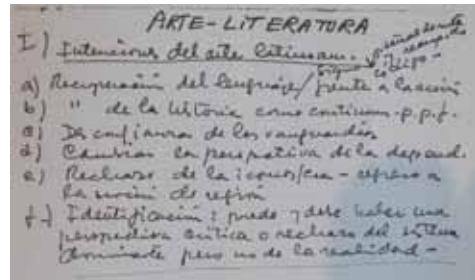 ARTE-LITERATURA
I) Intenciones del arte latinoam.
a) Recuperación del lenguaje/frente a la
b) " de la historia como continuum-p.p.f.
c) Desconfianza de las vanguardias
d) Cambiar la perspectiva de la depend.
e) Rechazo de la - regreso a
la noción de región
f) Identificación: puede y debe haber una
perspectiva crítica o rechazo del sistema
dominante pero no de la realidad-